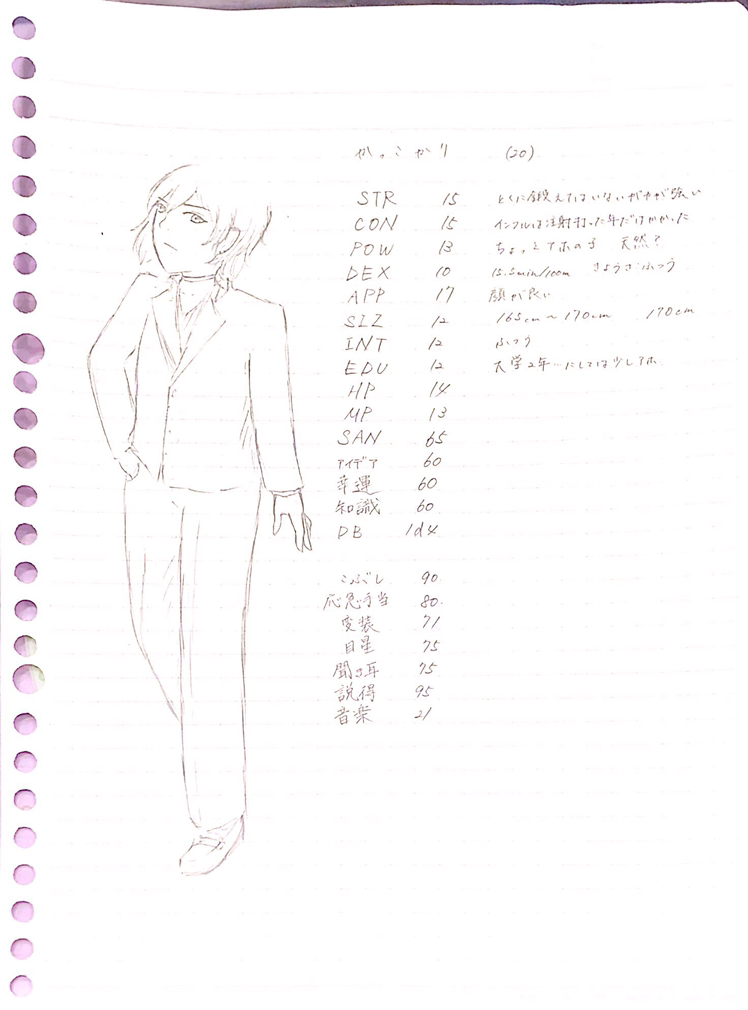 かっこかり (20)
STR 15 とくに鍛えてはいないが力が強い
CON 15 インフルは注射打った年だけかかった
POW 13 ちょっとアホの子 天然?
DEX 10 15.5min/100m きようさふつう
APP 17 顔が良い
SIZ 12 165cm〜170cm 170cm
INT 12 ふつう
EDU 12 大学2年…にしては少しアホ
HP 14
MP 13
SAN 65
アイデア 60
幸運 60
知識 60
DB 1d4
こぶし 90
応急手当 80
変装 71
目星 75
聞き耳 75
説得 95
音楽 21